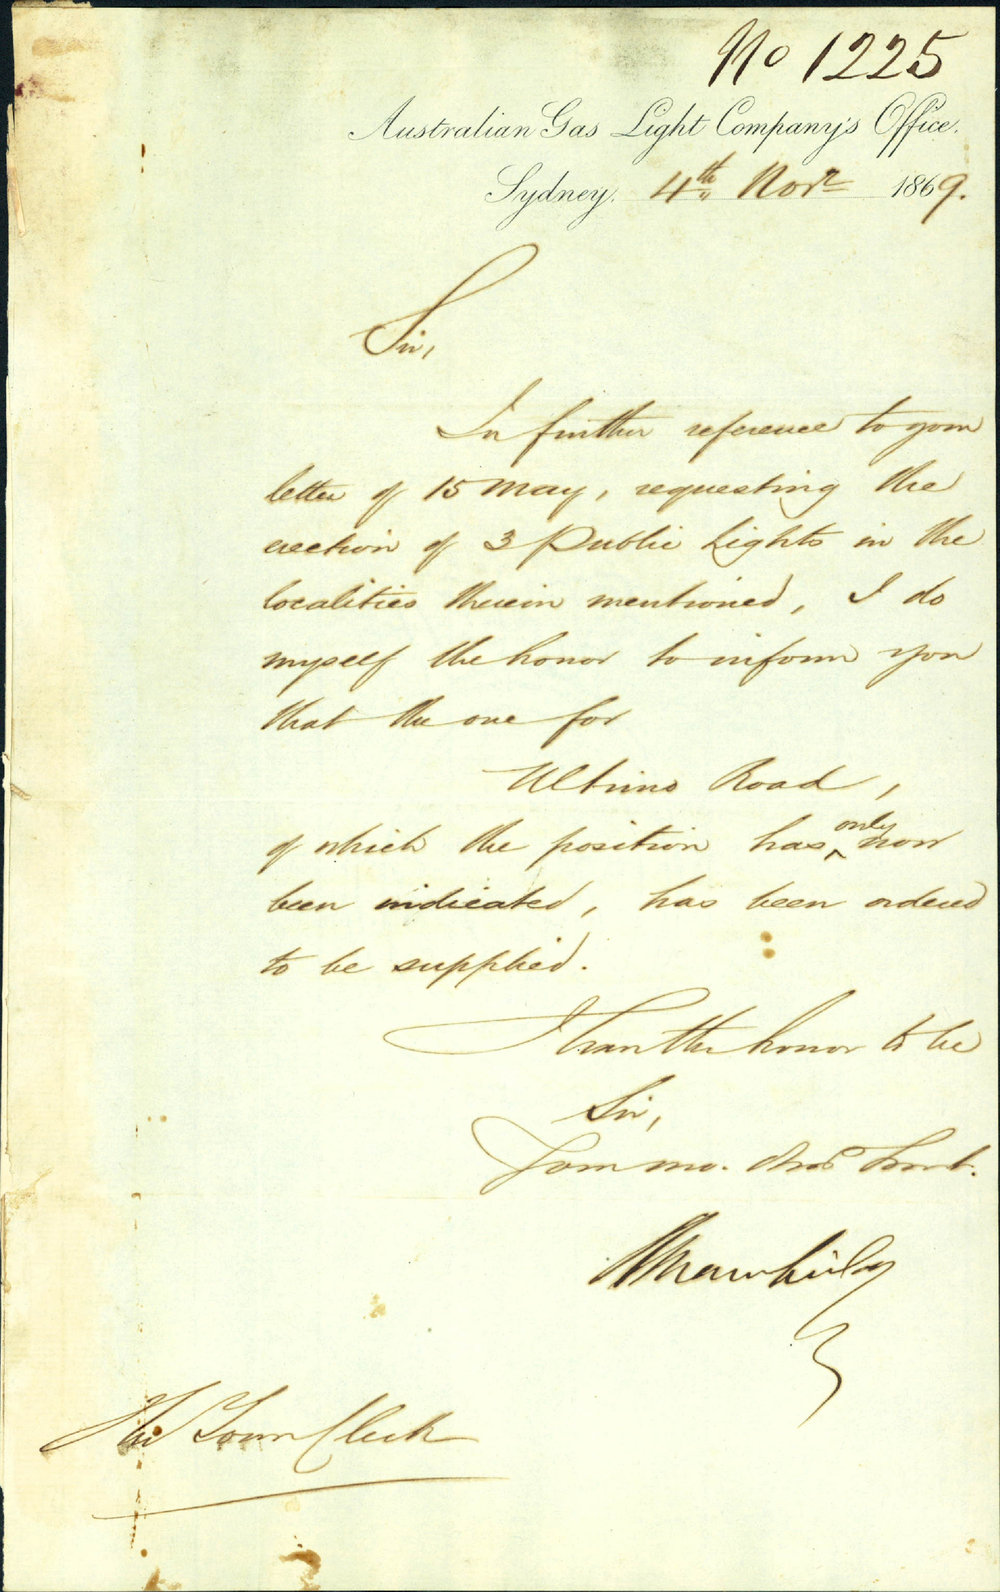 No 1225
Australian Gas Light Company's Office.
Sydney, 4th Novr 1869.
Sir,
In further reference to your
letter of 15 May, requesting the
erection of 3 Public Lights in the
localities therein mentioned, I do
myself the honor to inform you
that the one for
Ultimo Road,
of which the position has only now
been indicated, has been ordered
to be supplied.
I have the honor to be
Sir,
Your mo. Obed Servt.
The Town Clerk